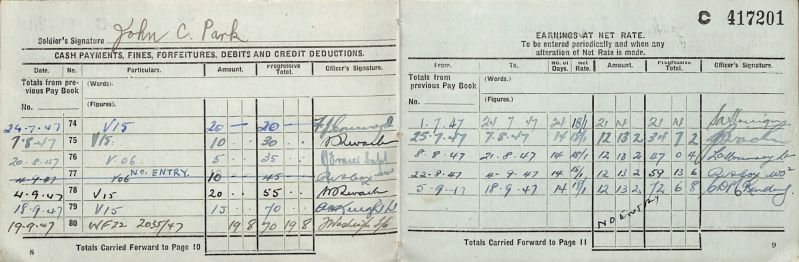 Soldier's Signature John C. Park
CASH PAYMENTS, FINES, FORFEITURES, DEBITS AND CREDIT DEDUCTIONS.
Date. No. Particulars. Amount. Progressive Total. Officer's Signature.
Totals from previous Pay Book (Words).
No. (Figures).
24-7-47 74 V15 20 — 20 —
7-8-47 75 V15. 10 · 30
20-8-47 76 V.06. 5 · 35
4-9-47 77 V06 NO. ENTRY. 10 — 45
4-9-47 78 V15 20 .. 55 ..
18-9-47 79 V15 15 · 70
19-9-47 80 WF22 2035/47 19 8 70 19 8
Totals Carried Forward to Page 10
8
C 417201
EARNINGS AT NET RATE.
To be entered periodically and when any
alteration of Net Rate is made.
From. To. No. of Days. Net Rate. Amount. Progressive Total. Officer's Signature.
Totals from previous Pay Book (Words).
No. (Figures).
1.7.47 24 7 47 24 18/1 21 14 21 14
25-7-47 7-8-47 14 18/1 12 13 2 34 7 2
8-8-47 21-8-47 14 18/1 12 13 2 47 0 4
22-8-47 4-9-47 14 18/1 12 13 2 59 13 6
5-9-47 18-9-47 14 18/1 12 13 2 72 6 8
NO ENTRY
Totals Carried Forward to Page 11
9